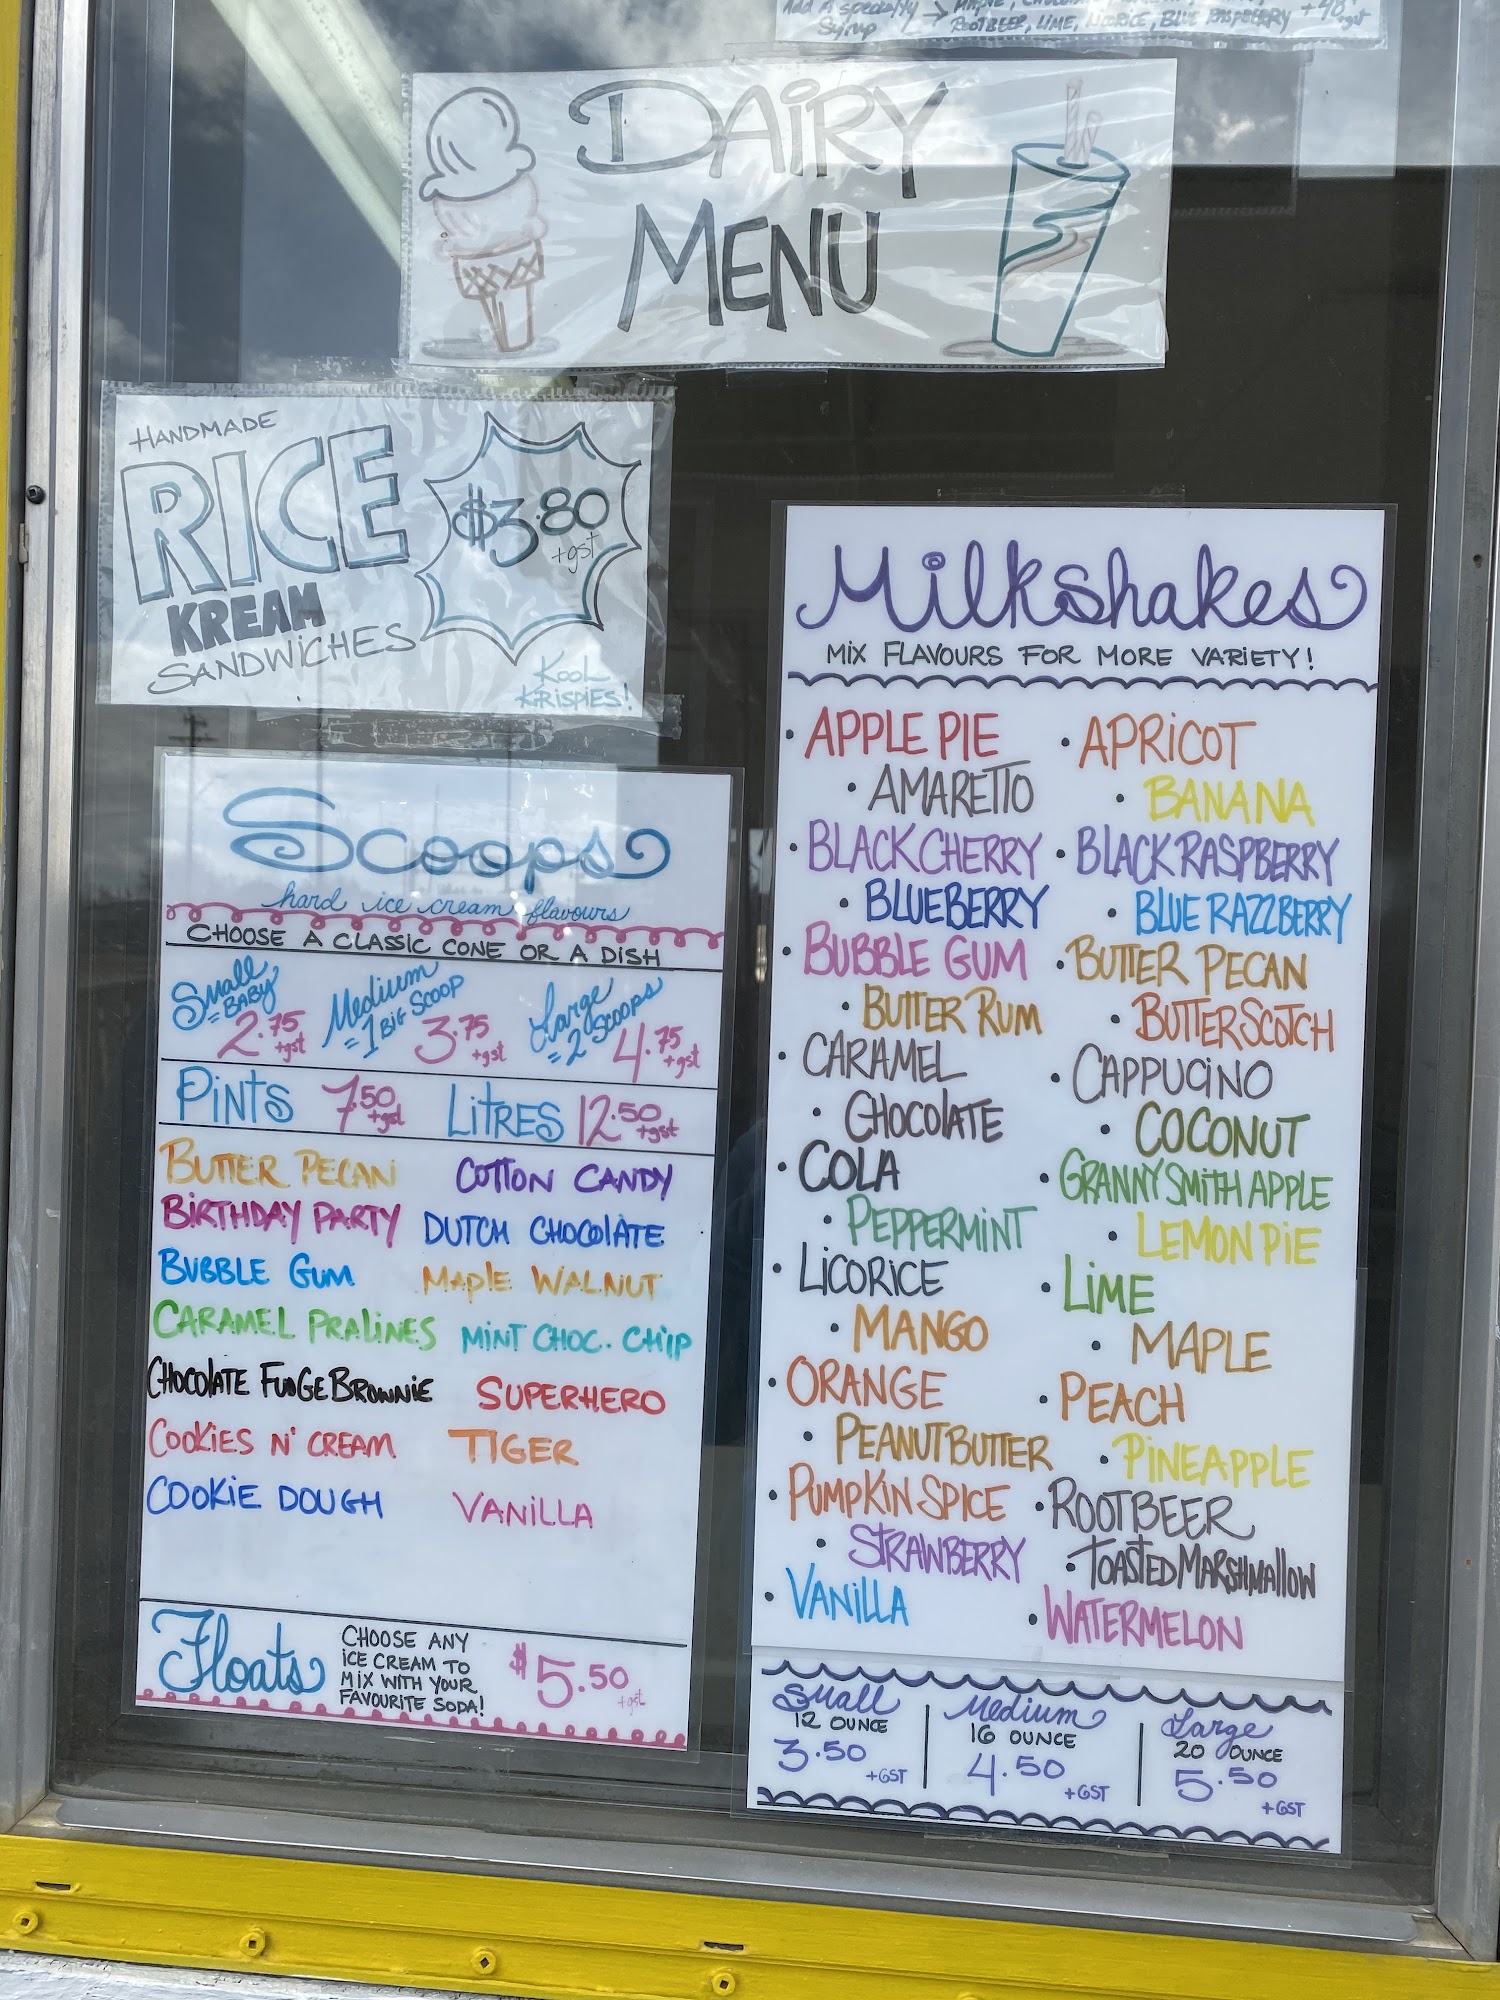 Add A specialty → MAPLE,
Syrup ROOTBEER, LIME, LICORICE, BLUE RASPBERRY +.40¢
+gst
DAiRY
MENU
HANDMADE
RICE
KREAM
SANDWiCHES
$3.80
+gst
KOOL
KRISPIES!
Scoops
hard ice cream flavours
CHOOSE A CLASSIC CONE OR A DISH
Small
=BABY
2.75
+gst
Medium
=1 BIG SCOOP
3.75
+gst
Large
=2 SCOOPS
4.75
+gst
PINTS 7.50 +gst LITRES 12.50 +gst
BUTTER PECAN COTTON CANDY
BIRTHDAY PARTY DUTCH CHOCOLATE
BUBBLE GUM MAPLE WALNUT
CARAMEL PRALINES MINT CHOC. CHIP
CHOCOLATE FUDGE BROWNIE SUPERHERO
COOKIES N' CREAM TIGER
COOKIE DOUGH VANILLA
Floats
CHOOSE ANY
ICE CREAM TO
MIX WITH YOUR
FAVOURITE SODA!
$5.50
+gst
Milkshakes
MIX FLAVOURS FOR MORE VARIETY!
• APPLE PIE • APRICOT
• AMARETTO • BANANA
• BLACK CHERRY • BLACK RASPBERRY
• BLUEBERRY • BLUE RAZZBERRY
• BUBBLE GUM • BUTTER PECAN
• BUTTER RUM • BUTTERSCOTCH
• CARAMEL • CAPPUCINO
• CHOCOLATE • COCONUT
• COLA • GRANNY SMITH APPLE
• PEPPERMINT • LEMON PIE
• LICORICE • LIME
• MANGO • MAPLE
• ORANGE • PEACH
• PEANUT BUTTER • PINEAPPLE
• PUMPKIN SPICE • ROOTBEER
• STRAWBERRY • TOASTED MARSHMALLOW
• VANILLA • WATERMELON
Small
12 OUNCE
3.50
+GST
Medium
16 OUNCE
4.50
+GST
Large
20 OUNCE
5.50
+GST